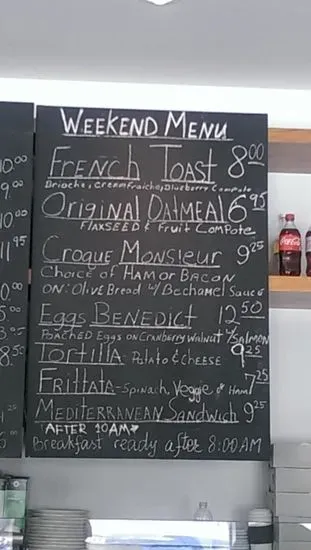 WEEKEND MENU
FRENCH TOAST 8.00
Brioche, Cremefraiche, Blueberry Compote
ORIGINAL OATMEAL 6.95
FLAXSEED & FRUIT COMPOTE
CROQUE MONSIEUR 9.25
CHOICE OF HAM OR BACON
ON: OLIVE BREAD W/ BECHAMEL SAUCE
EGGS BENEDICT 12.50
POACHED EGGS ON CRANBERRY WALNUT W/ SALMON
TORTILLA - POTATO & CHEESE 9.25
FRITTATA - SPINACH, VEGGIE, & HAM 7.25
MEDITERRANEAN SANDWICH 9.25
*AFTER 10AM*
Breakfast ready after 8:00AM
10.00
9.00
10.00
11.95
8.50
Coca-Cola